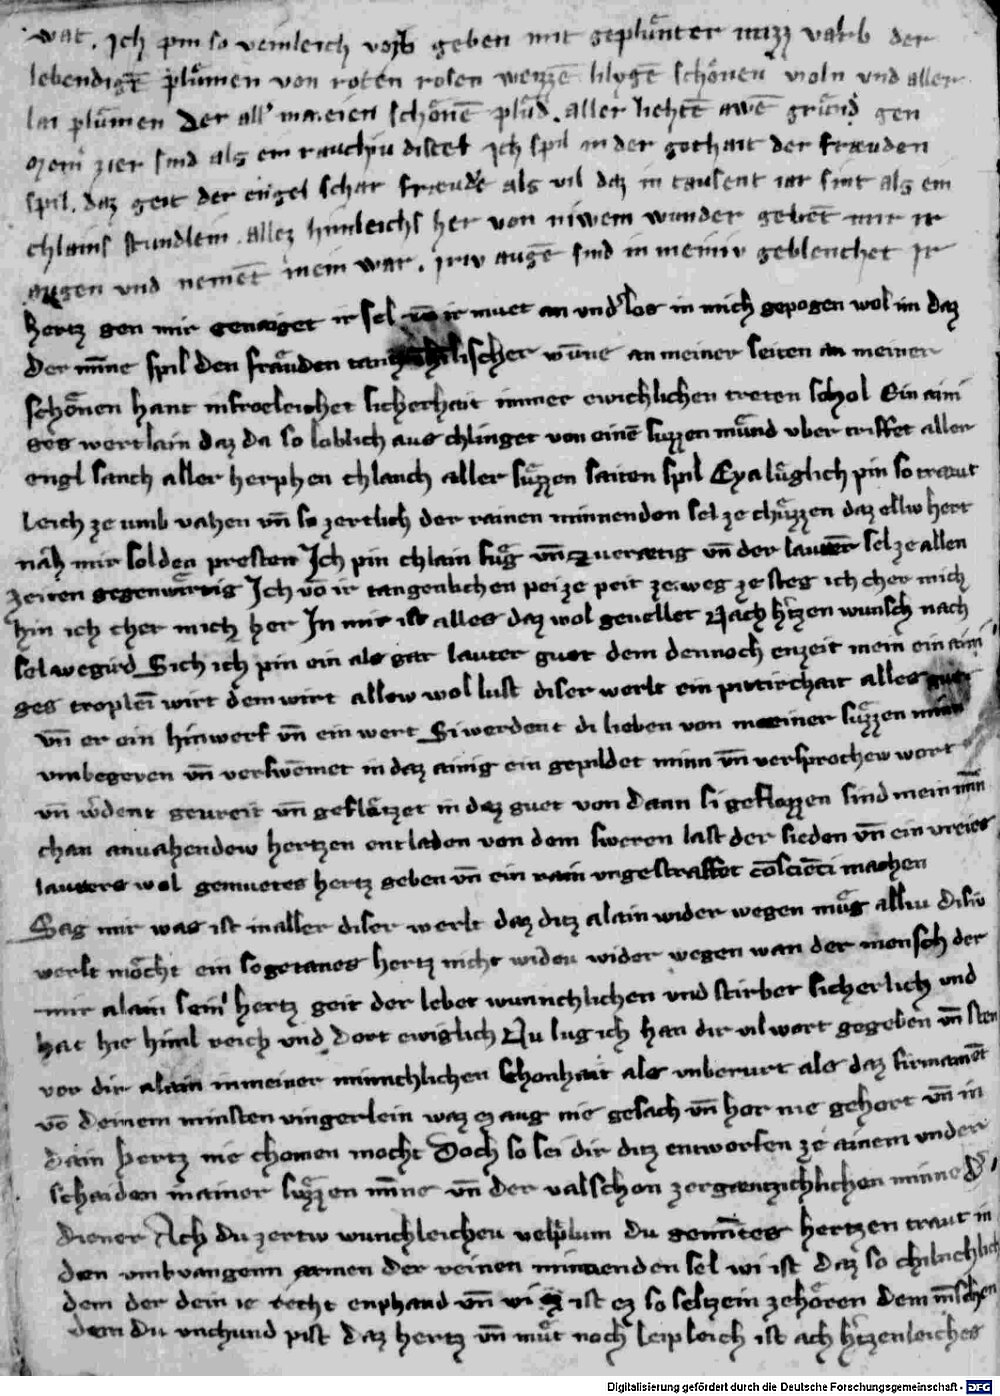 wat. Ich pin so veinleich vōst geben mit geplūnter mizz varb der
lebendigē plůmen von roten rosen weizzē lilygē schönen violn vnd aller
lai plůmen Der all' maieien schönē plůd. aller liehtē awē grůnd gen
mein zier sind als ein rauchiu distel Ich spil in der gothait der fræuden
spil. daz geit der engel schar fræude als vil daz in tausent iar sint als ein
chlains stundlein. allez himleichs her von niwem wunder gebēt mir ir
augen vnd nemēt mein war. iriv augē sind in meiniv geblenchet Ir
hertz gen mir genaiget ir sel vn̄ ir muet an vnd'los in mich gepogen wol im daz
Der mīne spil den fräuden tantz himelischer wūne an meiner seiten an meiner
schönen hant in froeleicher sicherhait immer ewichlichen treten schol Ein aini
ges wertlain daz da so loblich aus chlinget von einē suzzen mund vber triffet aller
engl sanch aller herphen chlanch aller suzzen saiten spil Eya lůglich pin so trawt
Leich ze umb vahen vn̄ so zertlich der rainen minnenden sel ze chüzzen daz elliv hert
nah mir solden presten Ich pin chlain fug vn̄ vn̄ der lauter sel ze allen
Zeiten gegenwärtig Ich vō ir tangenlichen pei ze peit ze weg ze steg ich cher mich
hin ich cher mich her In mir ist alles daz wol geuellet Nach h'tzen wunsch nach
sel wegird Sich ich pin ein als gar lauter guet dem dennoch enzeit mein ein aini
ges troplei wirt dem wirt allew wol lust diser werlt ein pittirchait alles guet
vn̄ er ein hinwerf vn̄ ein wert Si werdent di lieben von meiner suzzen minn
vmbegeven vn̄ verswemet in daz ainig ein gepildet minn vn̄ versprochew wort
vn̄ w'dent gevreit vn̄ geflätzet in daz guet von dann si geflozzen sind mein min̄
chan anuahendew hertzen entladen von dem sweren last der sieden vn̄ ein vreies
lauters wol gemuetes hertz geben vn̄ ein rain vngestraffet cōscieci machen
Sag mir was ist in aller diser werlt daz ditz alain wider wegen müg alliu disiv
werlt möcht ein sogetanes hertz nicht wider wegen wan der mensch der
mir alain sein hertz geit der lebet wunnchlichen vnd stirbet sicherlich vnd
hat hie himl reich vnd dort ewiglich Nu lug ich han dir vil wort gegeben vn̄ sten
vor dir alain in meiner minnchlichen schonhait als vnberurt als daz firmamēt
vō deinem minsten vingerlein waz ez aug nie gesach vn̄ hor nie gehort vn̄ in
dain hertz nie chomen mocht Doch so sei dir ditz entworfen ze ainem vnder
schaiden mainer suzzen mīne vn̄ der valschen zergæntzichlichen minne D'
diener Ach du zertiv wunchleicheu velplum du gemītes hertzen traut in
den vmbvangenn armen der reinen minnenden sel wi ist daz so chuntlich
dem der dein ie recht enphand vn̄ wi ist ez so seltzein zehören dem mēschen
dem du vnchund pist daz hertz vn̄ muet noch leipleich ist ach h'tzenleiches
Digitalisierung gefördert durch die Deutsche Forschungsgemeinschaft - DFG